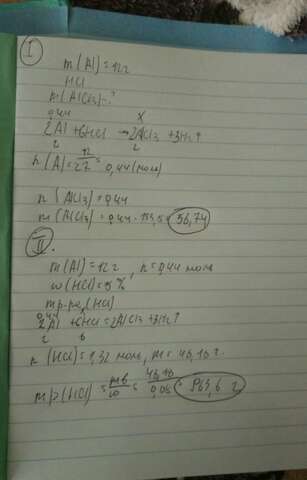 I
m(Al)=12г
HCl
m(AlCl3)-?
0,44 x
2Al+6HCl→2AlCl3+3H2↑
2 2
n(Al)=12/27=0,44(моль)
n(AlCl3)=0,44
m(AlCl3)=0,44·133,5= 56,74
II.
m(Al)=12г, n=0,44 моль
w(HCl)=5%
mр-ра(HCl)
0,44
2Al+6HCl=2AlCl3+3H2↑
2 6
n(HCl)=1,32 моль, m=48,18г.
mр(HCl)=mв/w=48,18/0,05= 963,6 г